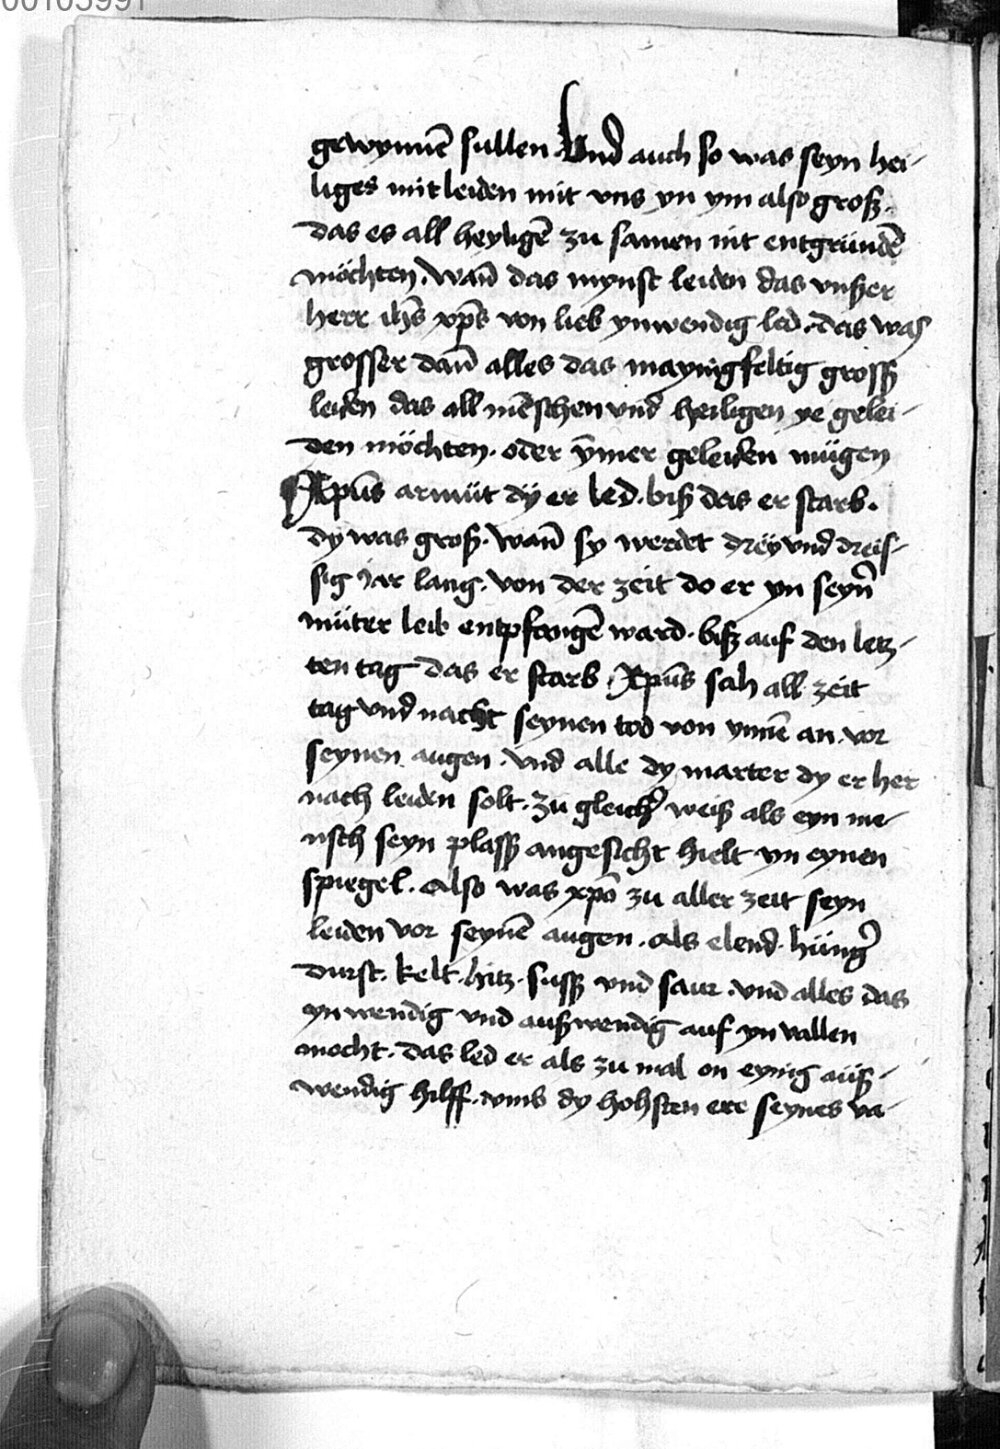 00105991
gewynnē sullen. Und auch so was seyn hei-
liges mitleiden mit vns yn ym also groß.
das es all heyligē zu samen nit entgründē
möchten. wañ das mynst leiden das vnßer
herr ihs̄ xps̄ von lieb ynwendig led. das was
grosser dañ alles das maynigfeltig gross
leiden das all mēschen vnd heiligen ye gelei-
den möchten. oder ȳmer geleiden mügen
Xpūs armüt dÿ er led. biß das er starb.
dy was groß. wañ sy werdet dreÿ vnd dreis-
sig jar lang. von der zeit do er yn seyn̄
müter leib entpfangē ward. biß auf den letz-
ten tag das er starb. Xpūs sah all zeit
tag vnd nacht seynen tod von ynnē an. vor
seynen augen. vnd alle dy marter dy er her
nach leiden solt. zu gleich̉ weiß als eyn me-
nsch seyn plass angesicht hielt yn eynen
spiegel. Also was xpō zu aller zeit seyn
leiden vor seynē augen. als elend. hüng̉
durst. kelt. hitz. suss vnd saur. vnd alles das
ynwendig vnd außwendig auf yn vallen
mocht. das led er als zu mal on eynig auß-
wendig hilff. vmb dy hohsten ere seynes va-